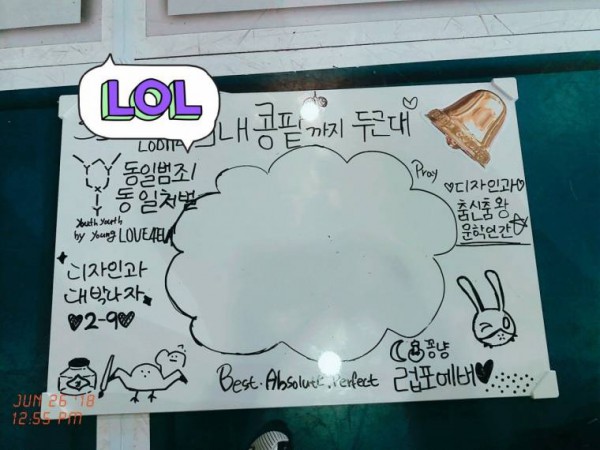 LOL
내 콩팥까지 두근대
Pray
동일범죄
동일처벌
Youth Youth
by Young
LOVE4EVA
♡디자인과
춤신춤왕
문학인간
디자인과
대박나자
♥2-9♥
꽁냥
Best. Absolute. Perfect
럽포에버♥
JUN 26 '18
12:55 PM